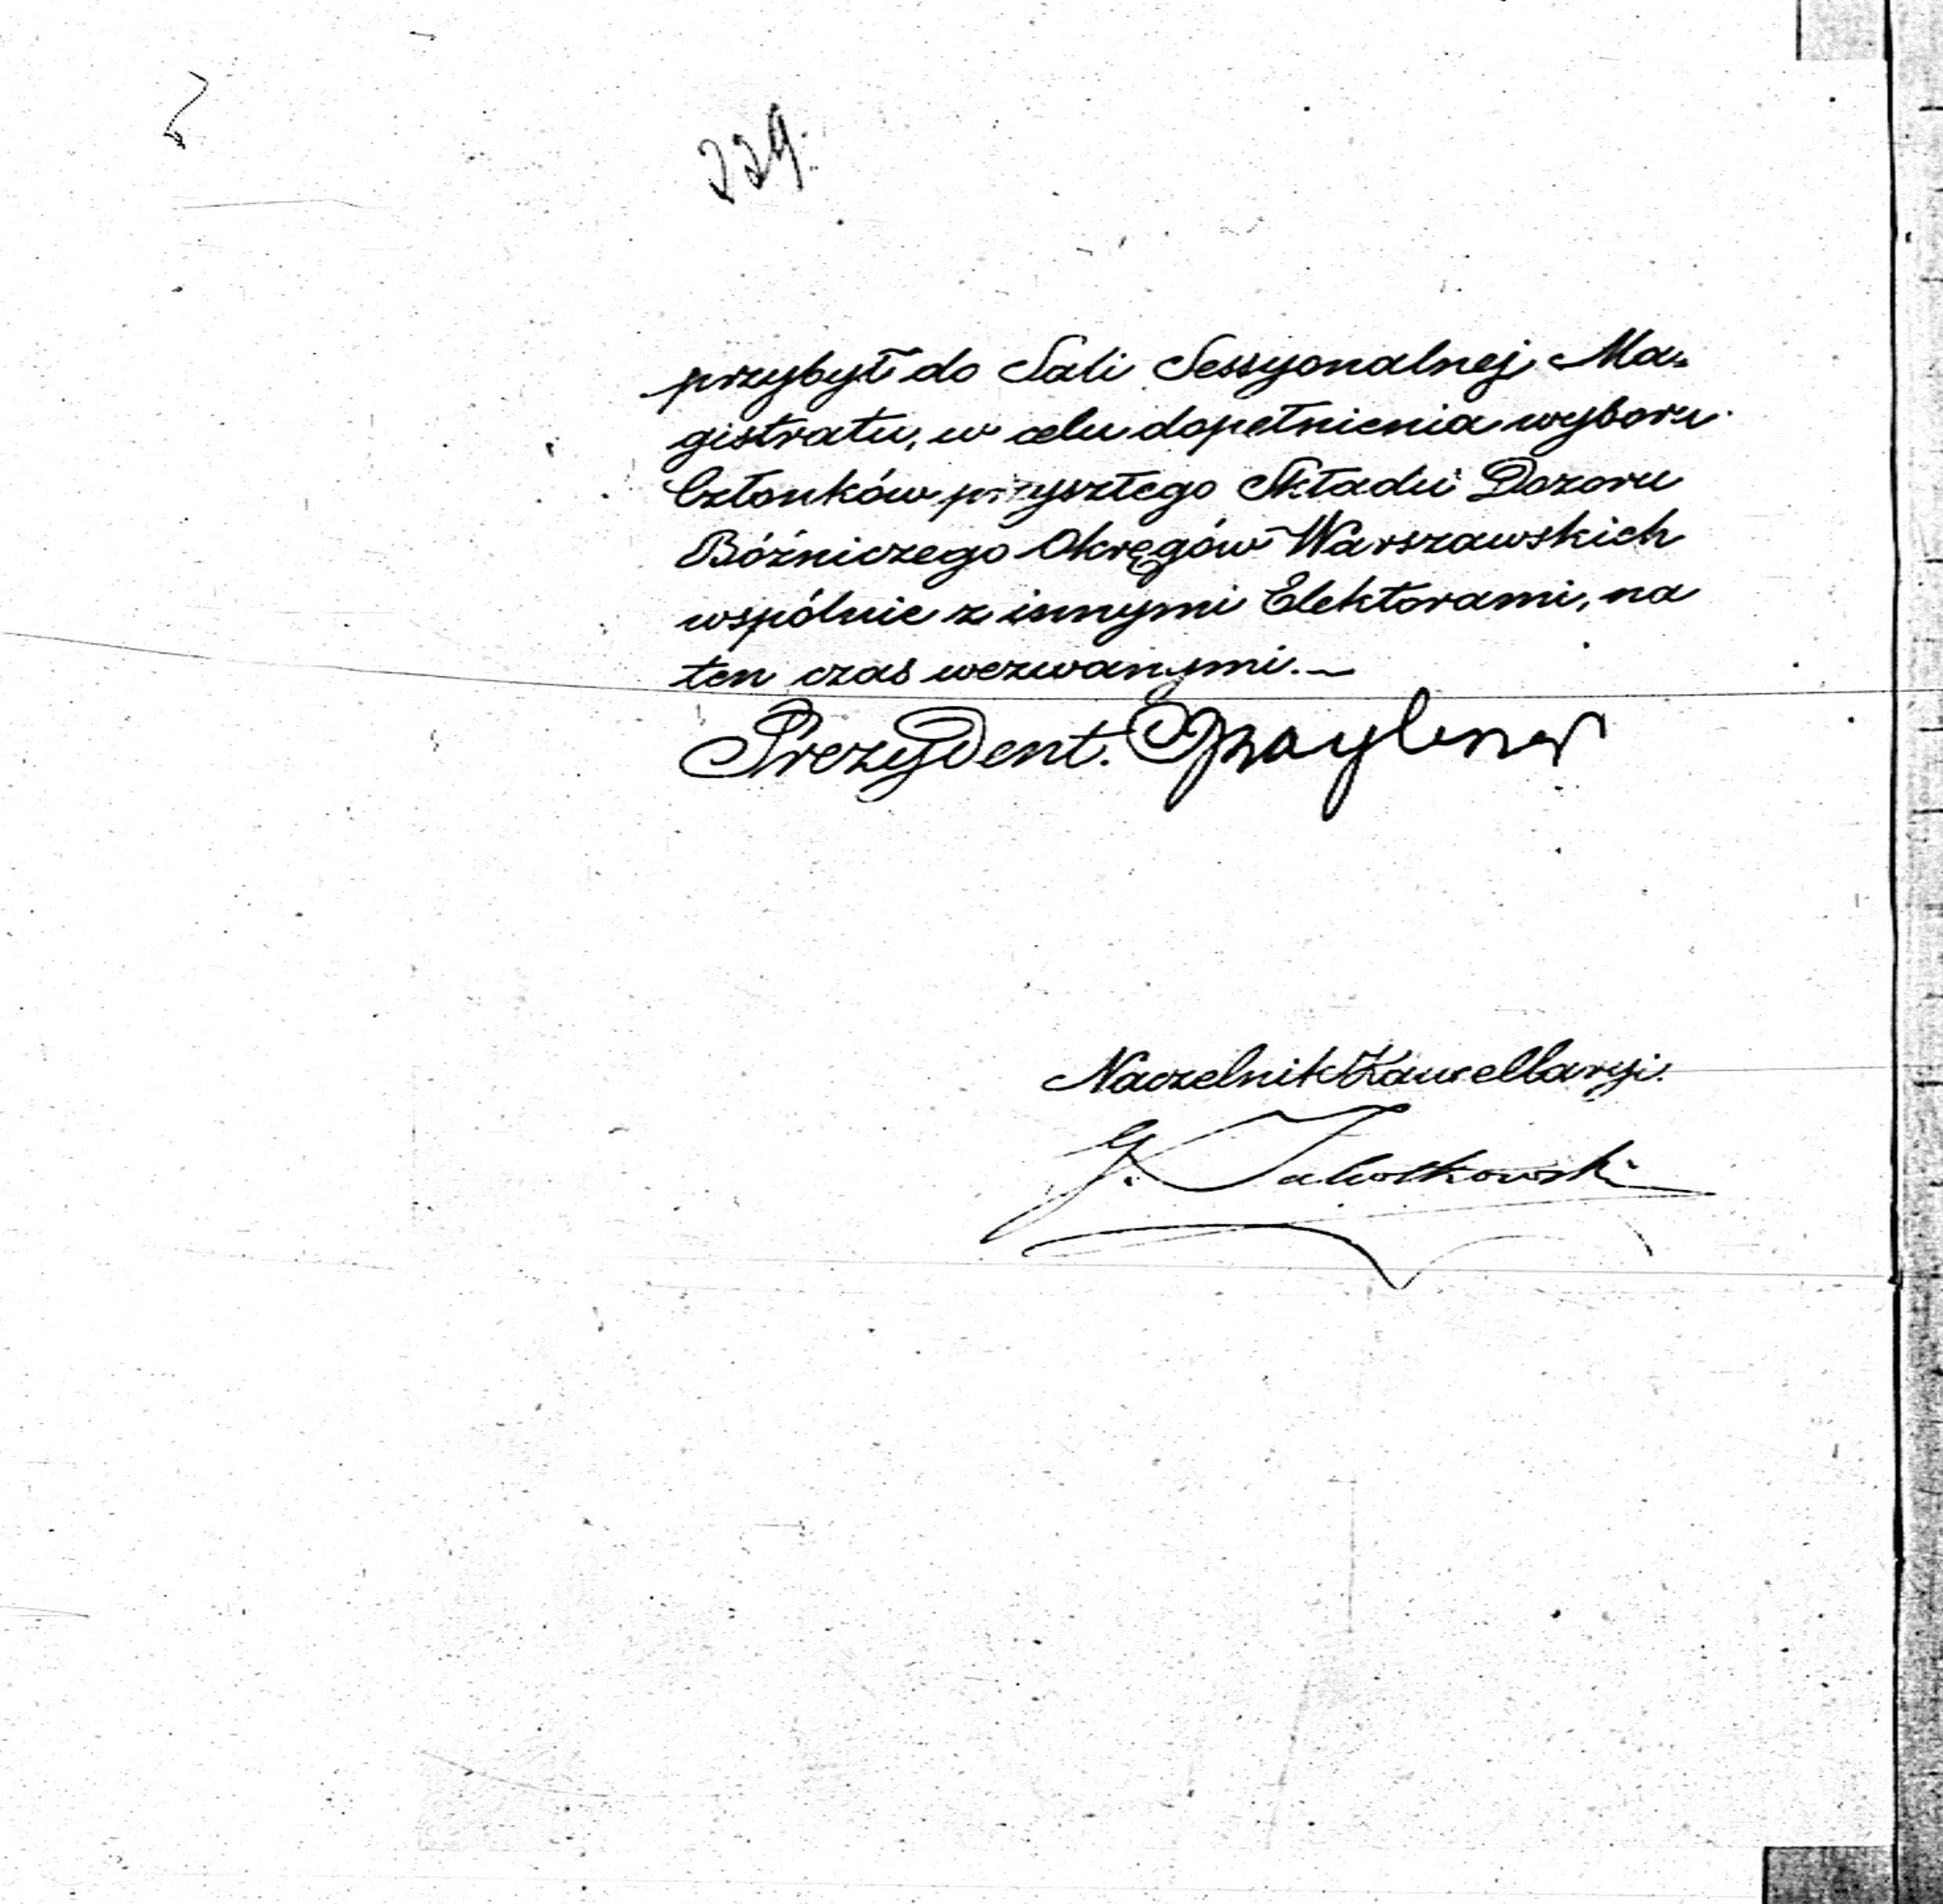 229.
przybył do Sali Sessyonalnej Ma-
gistratu, w celu dopełnienia wyboru
Członków przyszłego Składu Dozoru
Bóźniczego Okręgów Warszawskich
wspólnie z innymi Elektorami, na
ten czas wezwanymi. —
Prezydent.
Naczelnik Kancellaryi.